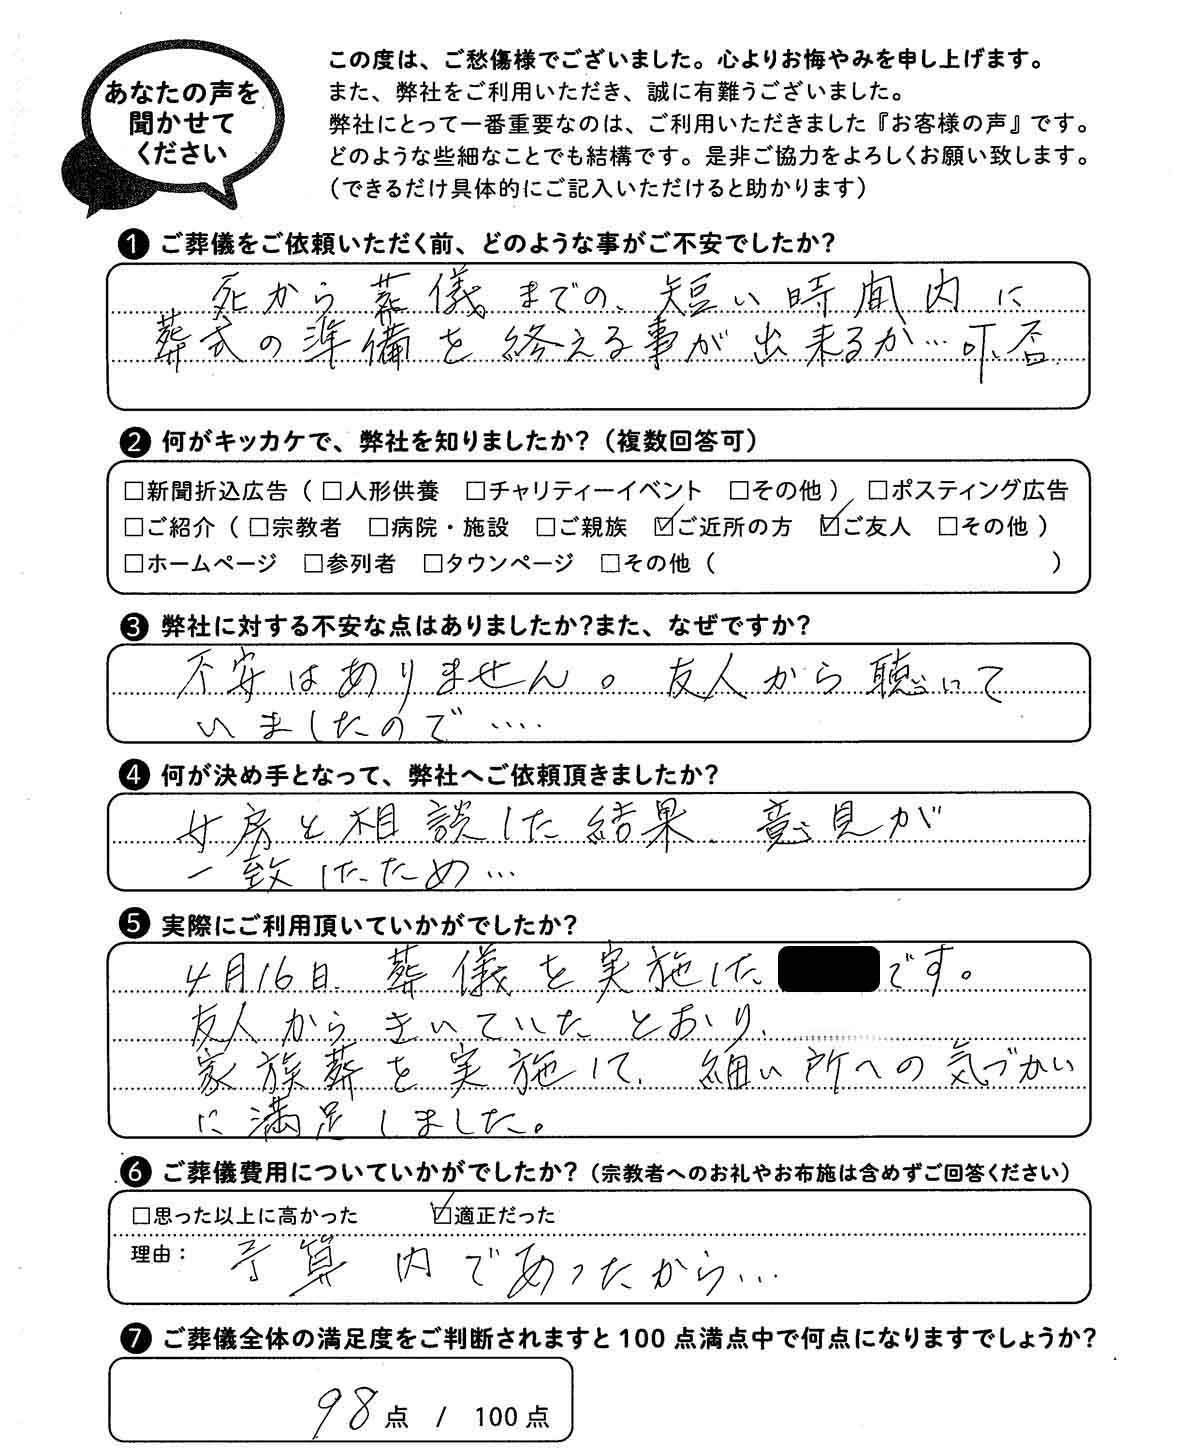 あなたの声を
聞かせて
ください
この度は、ご愁傷様でございました。心よりお悔やみを申し上げます。
また、弊社をご利用いただき、誠に有難うございました。
弊社にとって一番重要なのは、ご利用いただきました『お客様の声』です。
どのような些細なことでも結構です。是非ご協力をよろしくお願い致します。
（できるだけ具体的にご記入いただけると助かります）
❶ ご葬儀をご依頼いただく前、どのような事がご不安でしたか?
死から葬儀までの、短い時間内に
葬式の準備を終える事が出来るか…可、否
❷ 何がキッカケで、弊社を知りましたか?（複数回答可）
□新聞折込広告（□人形供養 □チャリティーイベント □その他） □ポスティング広告
□ご紹介（□宗教者 □病院・施設 □ご親族 ☑ご近所の方 ☑ご友人 □その他）
□ホームページ □参列者 □タウンページ □その他（ ）
❸ 弊社に対する不安な点はありましたか?また、なぜですか?
不安はありません。友人から聴いて
いましたので‥‥
❹ 何が決め手となって、弊社へご依頼頂きましたか?
女房と相談した結果、意見が
一致したため…
❺ 実際にご利用頂いていかがでしたか?
4月16日、葬儀を実施した です。
友人からきいていたとおり、
家族葬を実施して、細い所への気づかい
に満足しました。
❻ ご葬儀費用についていかがでしたか?（宗教者へのお礼やお布施は含めずご回答ください）
□思った以上に高かった ☑適正だった
理由： 予算内であったから…
❼ ご葬儀全体の満足度をご判断されますと100点満点中で何点になりますでしょうか?
98点 / 100点